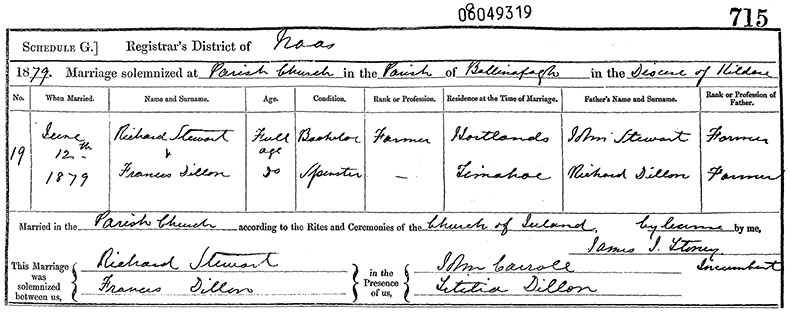 08049319
715
SCHEDULE G.] Registrar's District of Naas
1879. Marriage solemnized at Parish Church in the Parish of Ballinafagh in the Diocese of Kildare
No. When Married. Name and Surname. Age. Condition. Rank or Profession. Residence at the Time of Marriage. Father's Name and Surname. Rank or Profession of Father.
19 June 12th 1879 Richard Stewart Full age Bachelor Farmer Hortlands John Stewart Farmer
& Frances Dillon do Spinster — Timahoe Richard Dillon Farmer
Married in the Parish Church according to the Rites and Ceremonies of the Church of Ireland, by license by me,
James J. Stoney
Incumbent
This Marriage was solemnized between us, Richard Stewart
Frances Dillon
in the Presence of us, John Carroll
Letitia Dillon